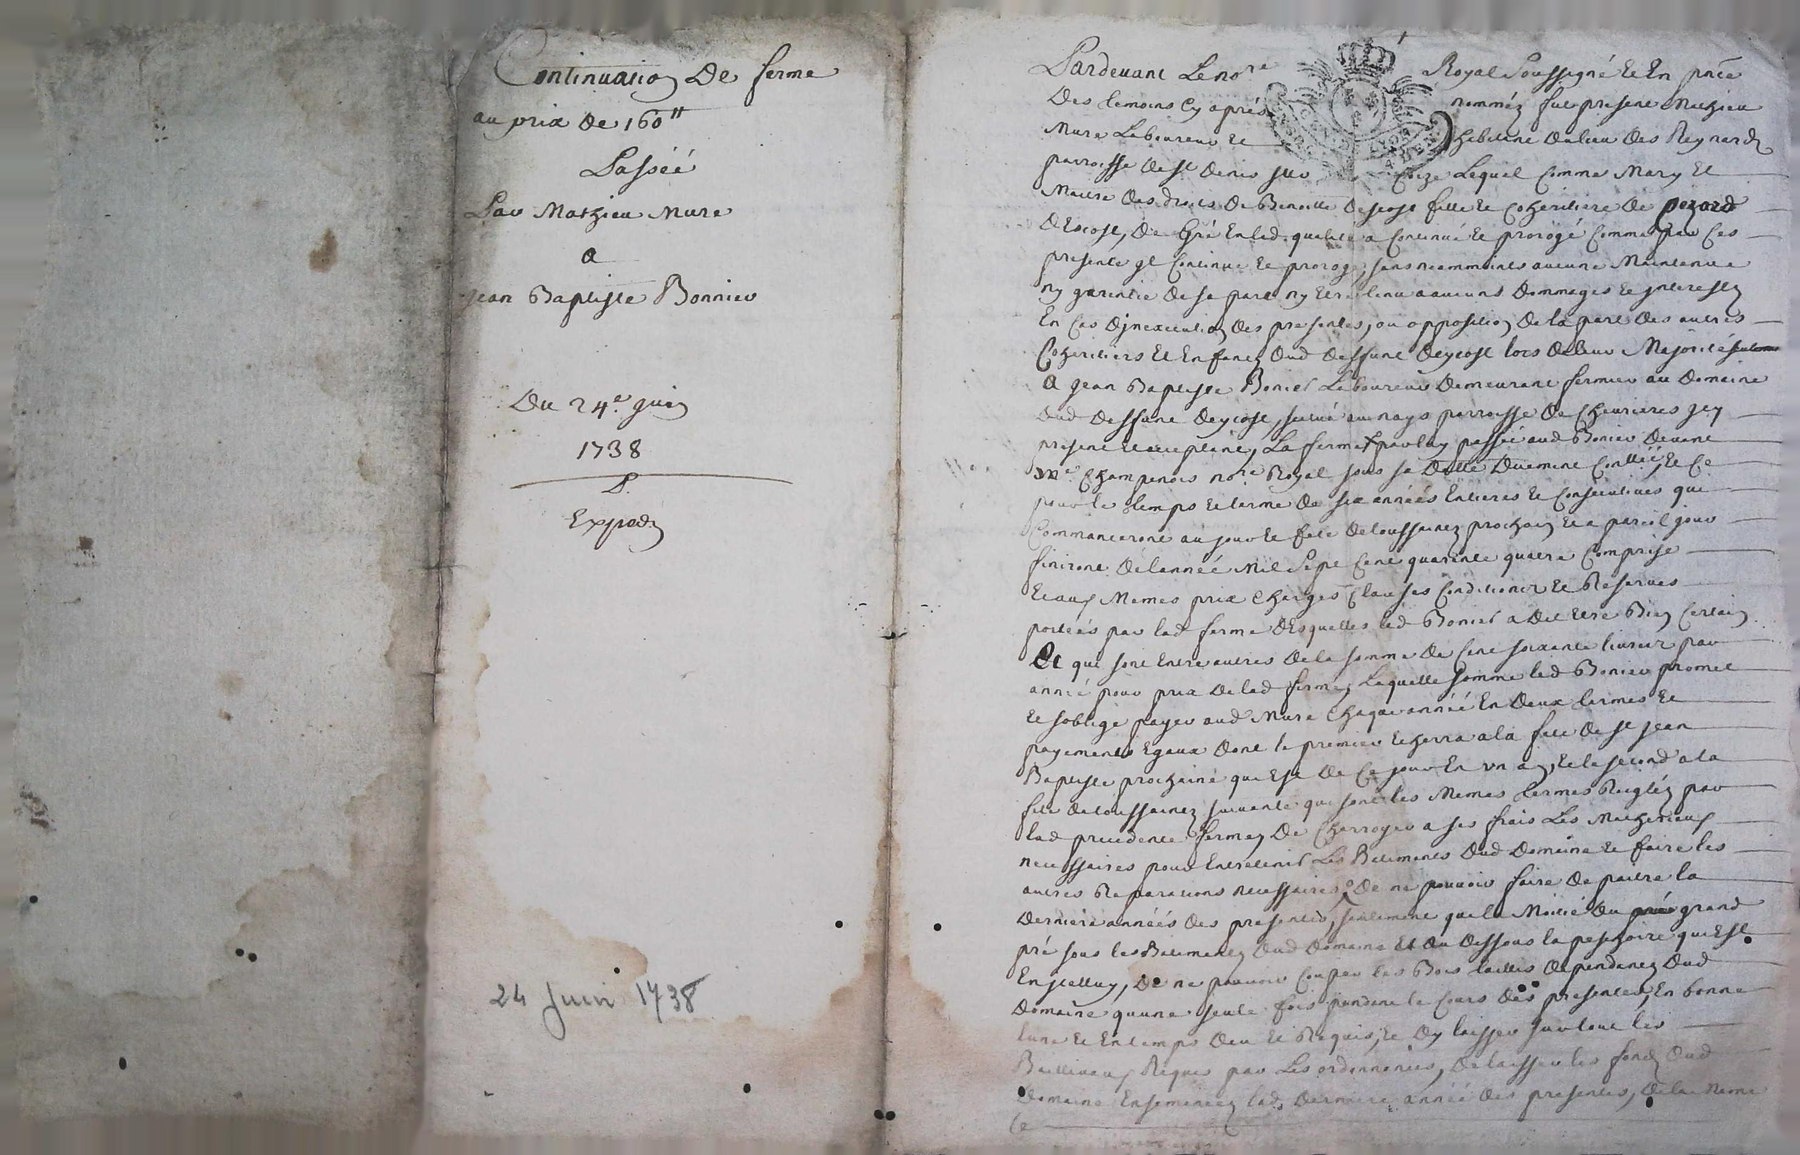 Continuation De ferme
au prix De 160 ⁱⁱ
Passéé
Par Mathieu Mure
a
Jean Baptiste Bonnier
Du 24.e juin
1738
Expedn
24 Juin 1738
Pardevant Le nore Royal soussigné Et En pnce
Des temoins Cy aprés nommés fut present Mathieu
Mure Laboureur Et habitant Du lieu Des Reynards
parroisse De st Denis sur Coize Lequel Comme Mary Et
Maitre Des droits De Benoitte Descost fille Et Cohéritiere De
D'Escost, De Gré En lad. qualité a Continué Et prorogé Comme par Ces
presente Il Continue Et proroge, sans neammoints aucune Maintenue
ny garentie De sa part ny Etre tenu a aucuns Dommages Et interests
En Cas D'jnexecution Des presentes, ou opposition De la part Des autres
Cohéritiers Et Enfants Dud Deffunt Deycost lors De leur Majorité
a Jean Baptiste Bonier Laboureur Demeurant fermier au Domaine
Dud Deffunt Deycost, situé parroisse De Chevrieres jcy
present Et acceptant, La ferme par luy passée aud Bonier Devant
Me Champenois nore Royal sous sa Datte Duement Contllée, Et Ce
pour le temps Et terme De six années Entieres Et Consecutives qui
Commanceront au jour Et fete De toussaints prochain Et a pareil jour
finiront De lannéé Mil Sept Cent quarante quatre Comprise
Et aux Memes prix Charges Clauses Conditions Et Reserves
portéés par lad ferme Desquelles led Bonier a Dit Etre Bien Certain
Et qui sont Entre autres De la somme De Cent soixante livres par
année pour prix De lad ferme, Laquelle somme led Bonier promet
Et soblige payer aud Mure Chaque annéé En Deux termes Et
payements Egaux Dont le premier Echerra a la fete De st Jean
Baptiste prochaine qui Est De Ce jour En un an, Et le second a la
fete De toussaints suivante qui sont les Memes termes Reglés par
lad precedente ferme, De Charroyer a ses frais Les Matheriaux
necessaires pour Entretenir Les Batiments Dud Domaine Et faire les
autres Reparations necessaires De ne pouvoir faire De paitre la
Derniere annéés Des presentes, seulement que la Moitié Du grand
pré sous les Batiments Dud Domaine Et Du Dessous la peschoire qui Est
En jcelluy, De ne pouvoir Couper les Bois taillis Dependants Dud
Domaine qu'une seule fois pendant le Cours Des presentes, En bonne
lune Et En temps Deu Et Requis, Et D'y laisser sur tout les
Balliveaux Requis par Les ordonnances, De laisser les fonds Dud
Domaine Ensemencés lad. Derniere année Des presentes, De la Meme